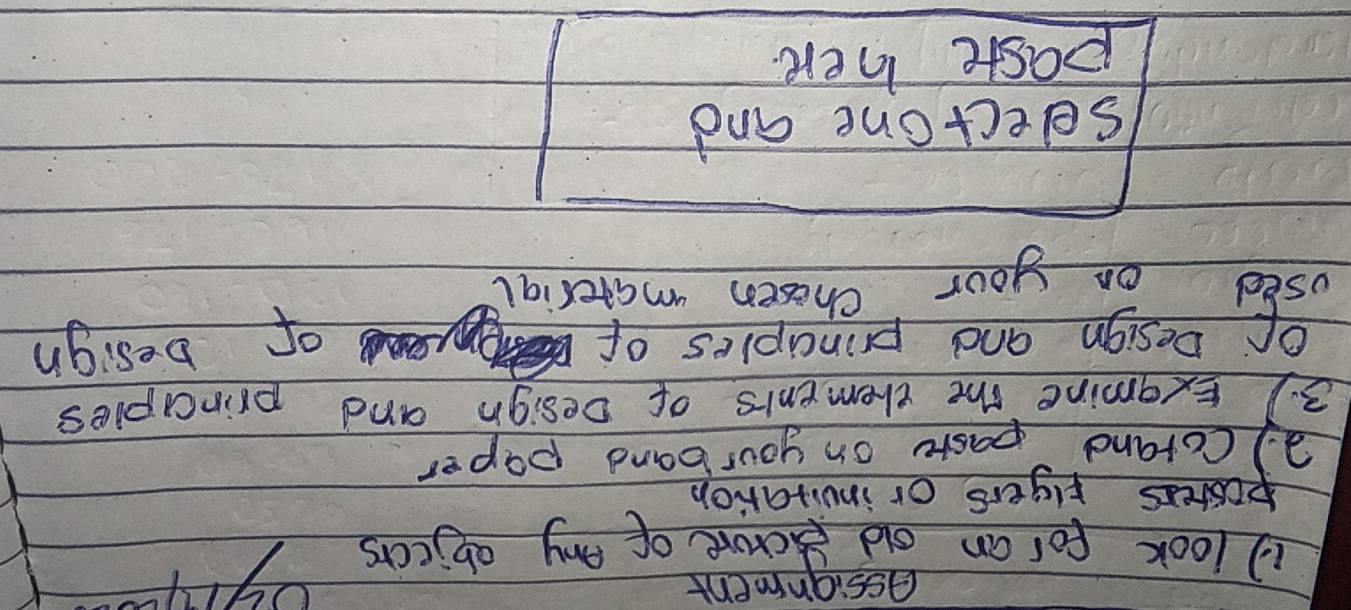 Assignment
1.) look for an old picture of Any objects
posters flyers or invitation
2.) Cut and paste on your band paper
3.) Examine the elements of Design and principles
of Design and principles of of Design
used on your chosen material
select one and
paste here